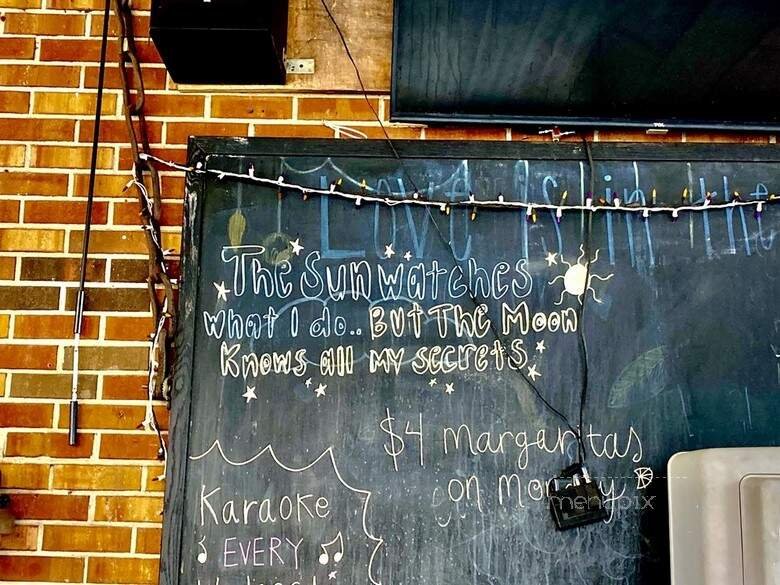 TCL
Love is in the
The Sun watches
What I do.. But The Moon
Knows all my secrets
$4 margaritas
on Monday
menupix
Karaoke
EVERY